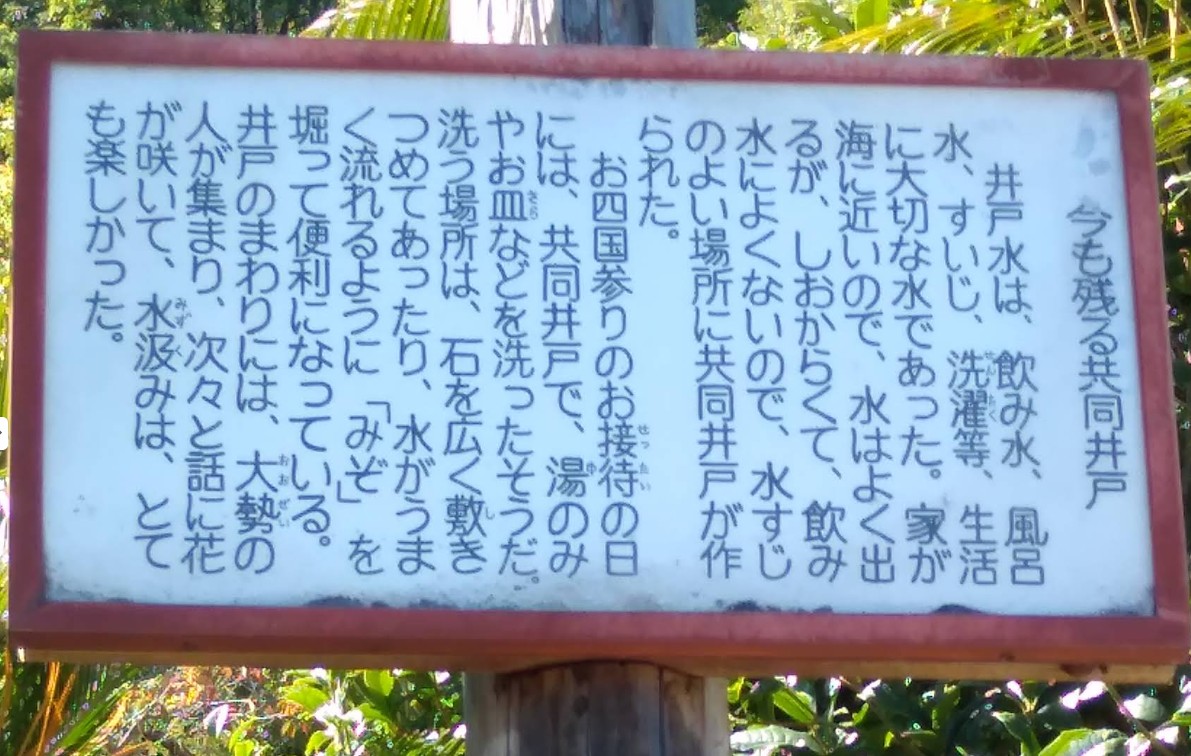 今も残る共同井戸
井戸水は、飲み水、風呂
水、すいじ、洗濯等、生活
に大切な水であった。家が
海に近いので、水はよく出
るが、しおからくて、飲み
水によくないので、水すじ
のよい場所に共同井戸が作
られた。
お四国参りのお接待の日
には、共同井戸で、湯のみ
やお皿などを洗ったそうだ。
洗う場所は、石を広く敷き
つめてあったり、水がうま
く流れるように「みぞ」を
堀って便利になっている。
井戸のまわりには、大勢の
人が集まり、次々と話に花
が咲いて、水汲みは、とて
も楽しかった。